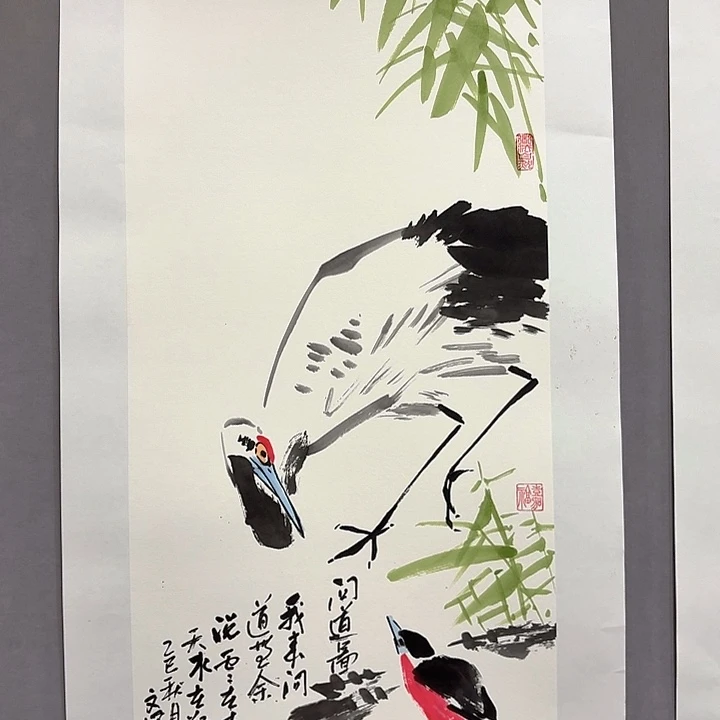 问道图
我来问
道无余
说云在青
天水在
乙巳秋月
文